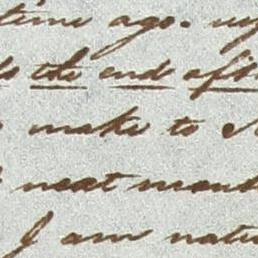 time ago. my
the end of the
make to
next month
I am natu